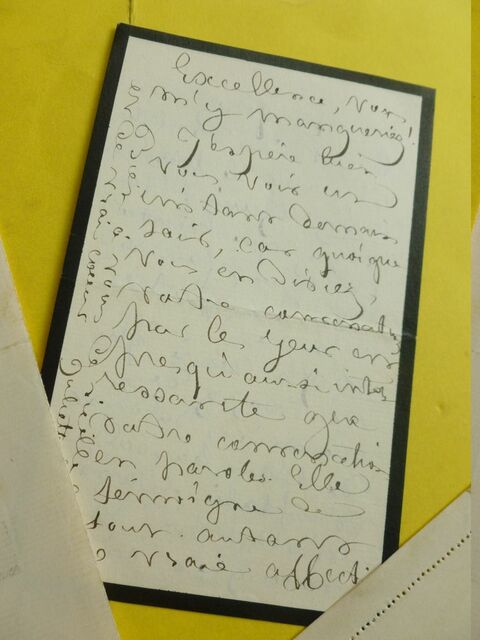 Excellence, Vous
m'y manqueriez!
J'espère bien
vous voir un
instant demain
soir, car quoique
vous en disiez,
votre conversation
par les yeux est
presqu'aussi inté
ressante que
votre conversation
en paroles. Elle
témoigne de
tout autant
vraie affecti
Juliette